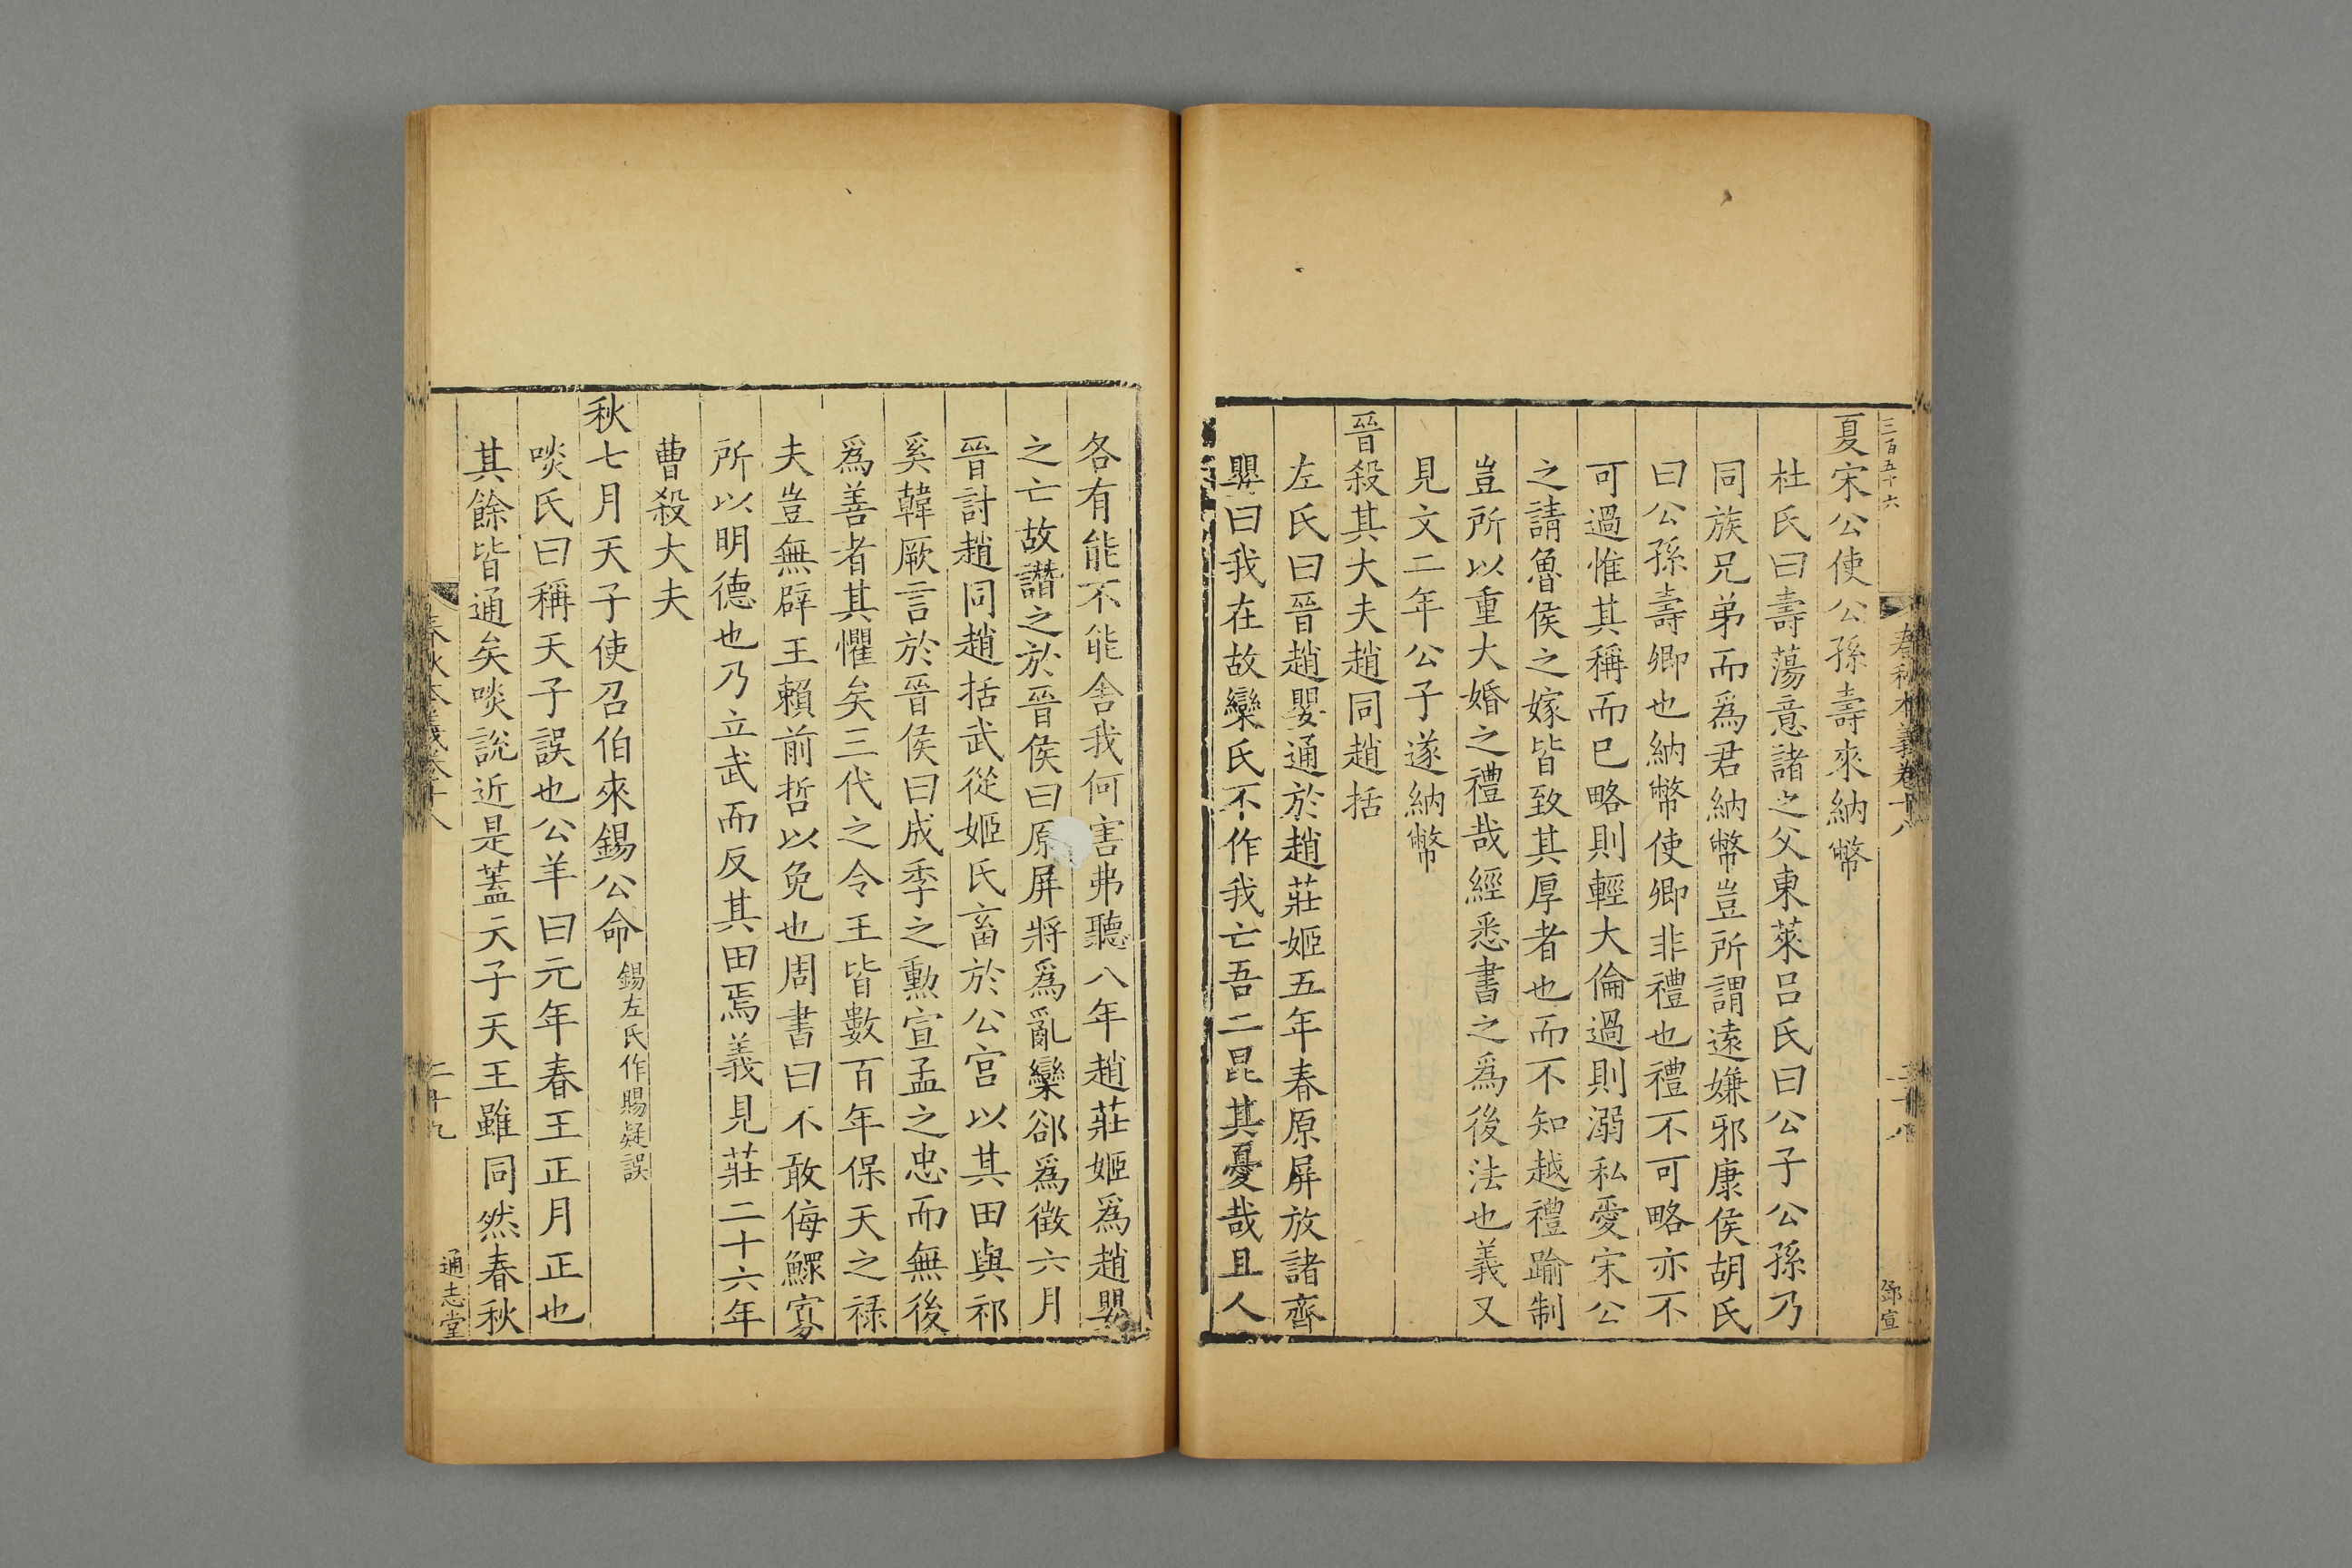 三百五十六
春秋本義卷十八
二十八
鄧宣
夏宋公使公孫壽來納幣
杜氏曰壽蕩意諸之父東萊呂氏曰公子公孫乃
同族兄弟而爲君納幣豈所謂遠嫌邪康侯胡氏
曰公孫壽卿也納幣使卿非禮也禮不可略亦不
可過惟其稱而已略則輕大倫過則溺私愛宋公
之請魯侯之嫁皆致其厚者也而不知越禮踰制
豈所以重大婚之禮哉經悉書之爲後法也義又
見文二年公子遂納幣
晉殺其大夫趙同趙括
左氏曰晉趙嬰通於趙莊姬五年春原屏放諸齊
嬰曰我在故欒氏不作我亡吾二昆其憂哉且人
各有能不能舍我何害弗聽八年趙莊姬爲趙嬰
之亡故譖之於晉侯曰原屏將爲亂欒郤爲徵六月
晉討趙同趙括武從姬氏畜於公宮以其田與祁
奚韓厥言於晉侯曰成季之勳宣孟之忠而無後
爲善者其懼矣三代之令王皆數百年保天之祿
夫豈無辟王賴前哲以免也周書曰不敢侮鰥寡
所以明德也乃立武而反其田焉義見莊二十六年
曹殺大夫
秋七月天子使召伯來錫公命 錫左氏作賜疑誤
啖氏曰稱天子誤也公羊曰元年春王正月正也
其餘皆通矣啖說近是蓋天子天王雖同然春秋
春秋本義卷十八
二十九
通志堂